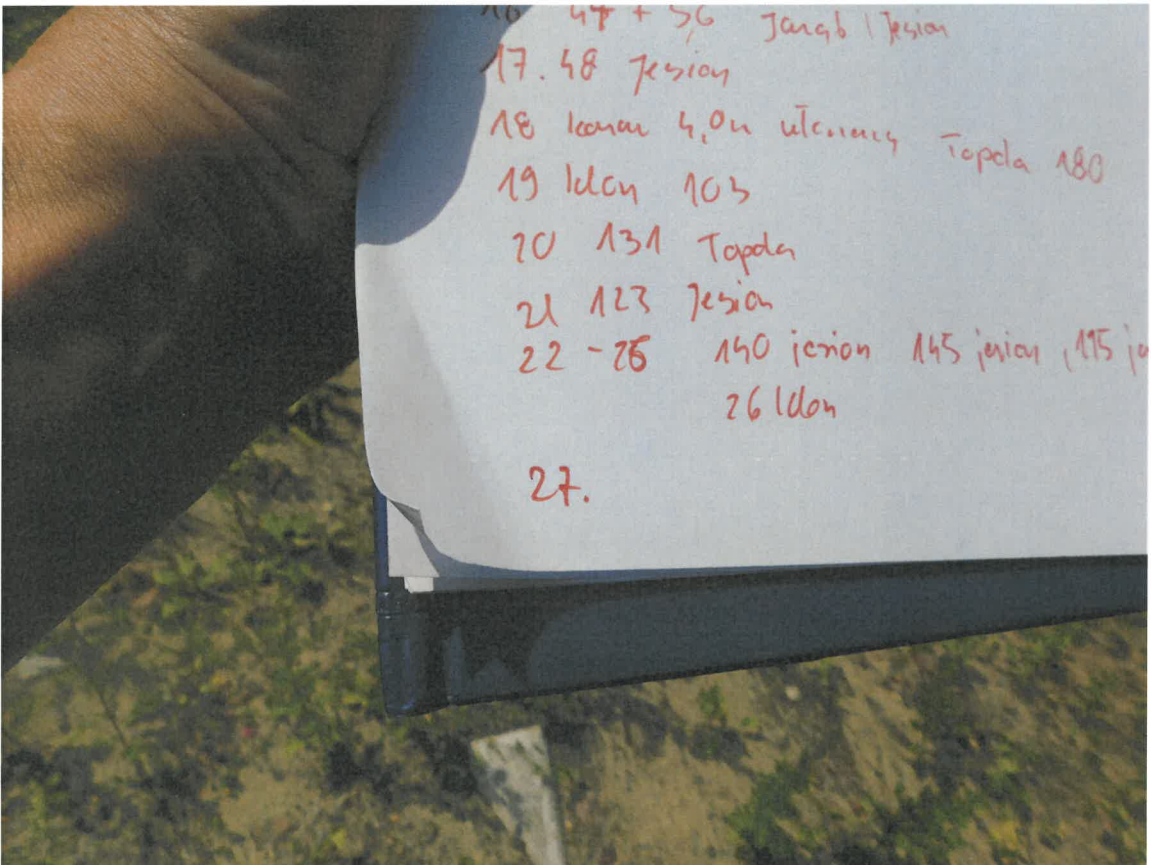 16 47 + 56 Jarząb | Jesion
17. 48 Jesion
18 konar 4,0m ułamany Topola 180
19 klon 103
20 131 Topola
21 123 Jesion
22 - 26 140 jesion 145 jesion , 115 je
26 klon
27.